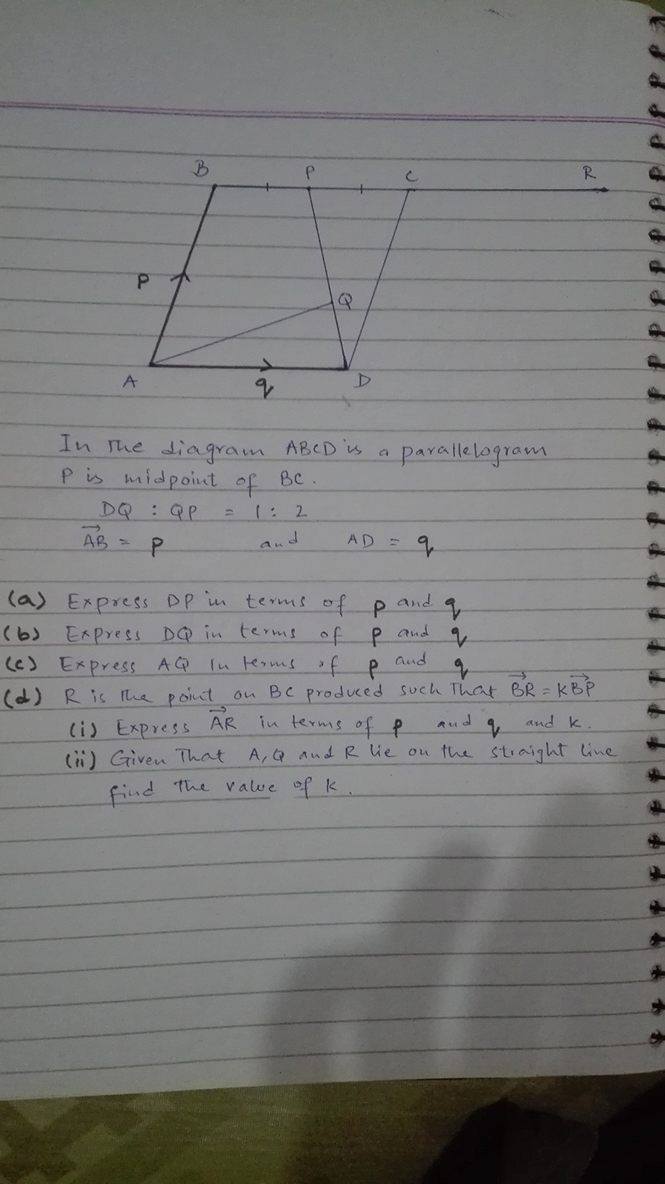 B P C R
p
Q
A q D
In The diagram ABCD is a parallelogram
P is midpoint of BC.
DQ : QP = 1 : 2
$\overrightarrow{AB}$ = p and AD = q
(a) Express DP in terms of p and q
(b) Express DQ in terms of p and q
(c) Express AQ In terms of p and q
(d) R is The point on BC produced such That $\overrightarrow{BR}$ = K$\overrightarrow{BP}$
(i) Express $\overrightarrow{AR}$ in terms of p and q and k.
(ii) Given That A, Q and R lie on the straight line
find the value of k.